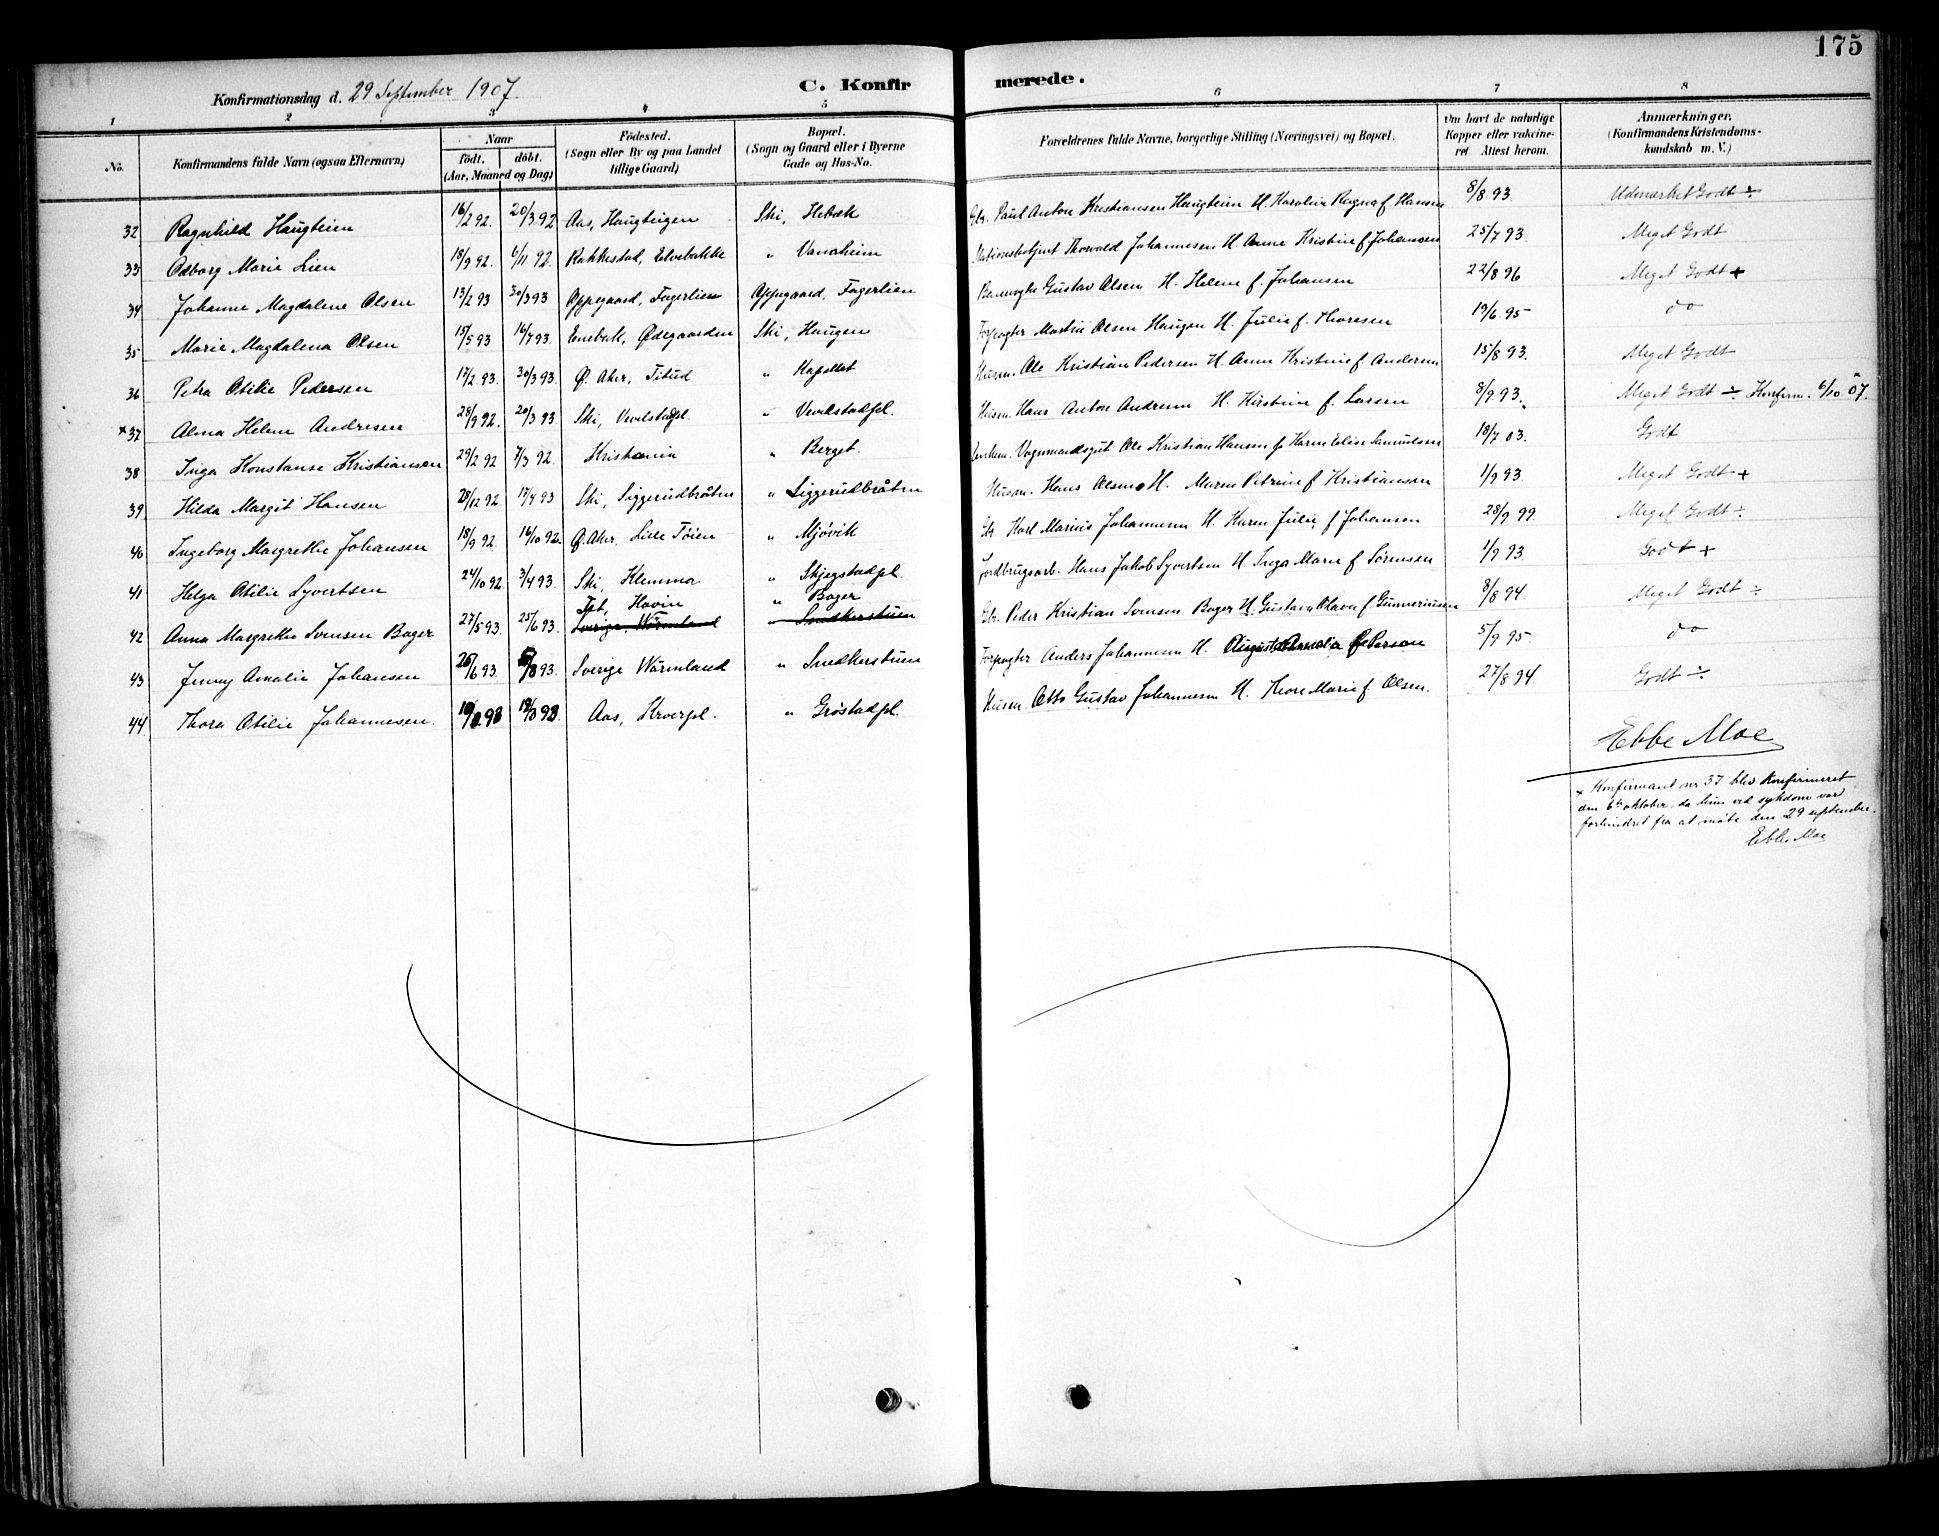 175
Konfirmationsdag d. 29 September 1907.
C. Konfirmerede.
1 2 3 4 5 6 7 8
No. Konfirmandens fulde Navn (ogsaa Efternavn) Naar født. døbt. (Aar, Maaned og Dag) Fødested. (Sogn eller By og paa Landet tillige Gaard) Bopæl. (Sogn og Gaard eller i Byerne Gade og Hus-No. Forældrenes fulde Navne, borgerlige Stilling (Næringsvei) og Bopæl. Om havt de naturlige Kopper eller vaccineret. Attest herom. Anmærkninger. (Konfirmandens Kristendomskundskab m. V.)
32 Ragnhild Haugteien 16/2 92. 20/3 92 Aas, Haugteigen Ski, Hebæk Gbr. Paul Anton Kristiansen Haugteien H. Karoline Ragna f. Hansen 8/8 93. Udmærket Godt ÷
33 Asborg Marie Lien 18/9 92. 6/11 92. Rakkestad, Elvebakke " Vanaheim Stationsbetjent Thorvald Johannesen H. Anne Kristine f. Johansen 25/7 93. Meget Godt
34 Johanne Magdalene Olsen 13/2 93 30/3 93 Oppegaard, Fagerlien Oppegaard, Fagerlien Banevogter Gustav Olsen H. Helene f. Johansen 22/8 96 Meget Godt +
35 Marie Magdalena Olsen 15/5 93 16/7 93. Enebak, Ødegaarden Ski, Haugen Forpagter Martin Olsen Haugen H. Julie f. Thoresen 19/6 95- do
36 Petra Otilie Pedersen 17/2 93. 30/3 93. Ø. Aker, Titud " Kapellet Husm. Ole Kristian Pedersen H. Anne Kristine f. Andersen 15/8 93. Meget Godt
× 37 Alma Helene Andresen 28/9 92. 20/3 93. Ski, Vevelstadpl. " Vevelstadpl. Husm. Hans Anton Andresen H. Kirstine f. Larsen 8/9 93. Meget Godt ÷ Konfirm. 6/10 07.
38 Inga Konstanse Kristiansen 29/2 92 7/3 92. Kristiania " Berget. Vognmandsgut Ole Kristian Hansen f. Karen Elise Samuelsen 18/7 03. Godt
39. Hilda Margit Hansen 28/12 92 17/4 93 Ski, Siggerudbråten " Siggerudbråten Husm. Hans Olsen H. Maren Petrine f. Kristiansen 1/9 93. Meget Godt +
40 Ingeborg Margrethe Johansen 18/9 92. 16/10 92. Ø. Aker, Lille Tøien " Mjøvik Gbr. Karl Marius Johannesen H. Karen Julie f. Johansen 28/9 99. Meget Godt ÷
41 Helga Otilie Syvertsen 24/10 92. 3/4 93. Ski, Klemma " Skjegstadpl. Jordbrugsarb. Hans Jakob Syvertsen H. Inga Marie f. Sørensen 1/9 93 Godt +
42 Anna Margrethe Svensen Bager 27/5 93. 25/6 93. Tet, Havin Sverige, Wärmland " Bager Snedkerstuen Gbr. Peder Kristian Svensen Bager H. Gustava Olava f. Gunneriusen 8/8 94. Meget Godt ÷
43 Jenny Amalie Johansen 25/6 93. 8 93. Sverige Wärmland " Snedkerstuen Forpagter Anders Johannesen H. Augusta Amalia f. Person 5/9 95- do
44 Thora Otilie Johannesen. 93 93. Aas, Kverpl. " Grøstadpl. Husm. Otto Gustav Johannesen H. Thora Marie f. Olsen. 27/8 94 Godt ÷
Ebbe Moe
× Konfirmant nr 37 blev konfirmeret
den 6te oktober, da hun ved sykdom var
forhindret fra at møte den 29 september.
Ebbe Moe